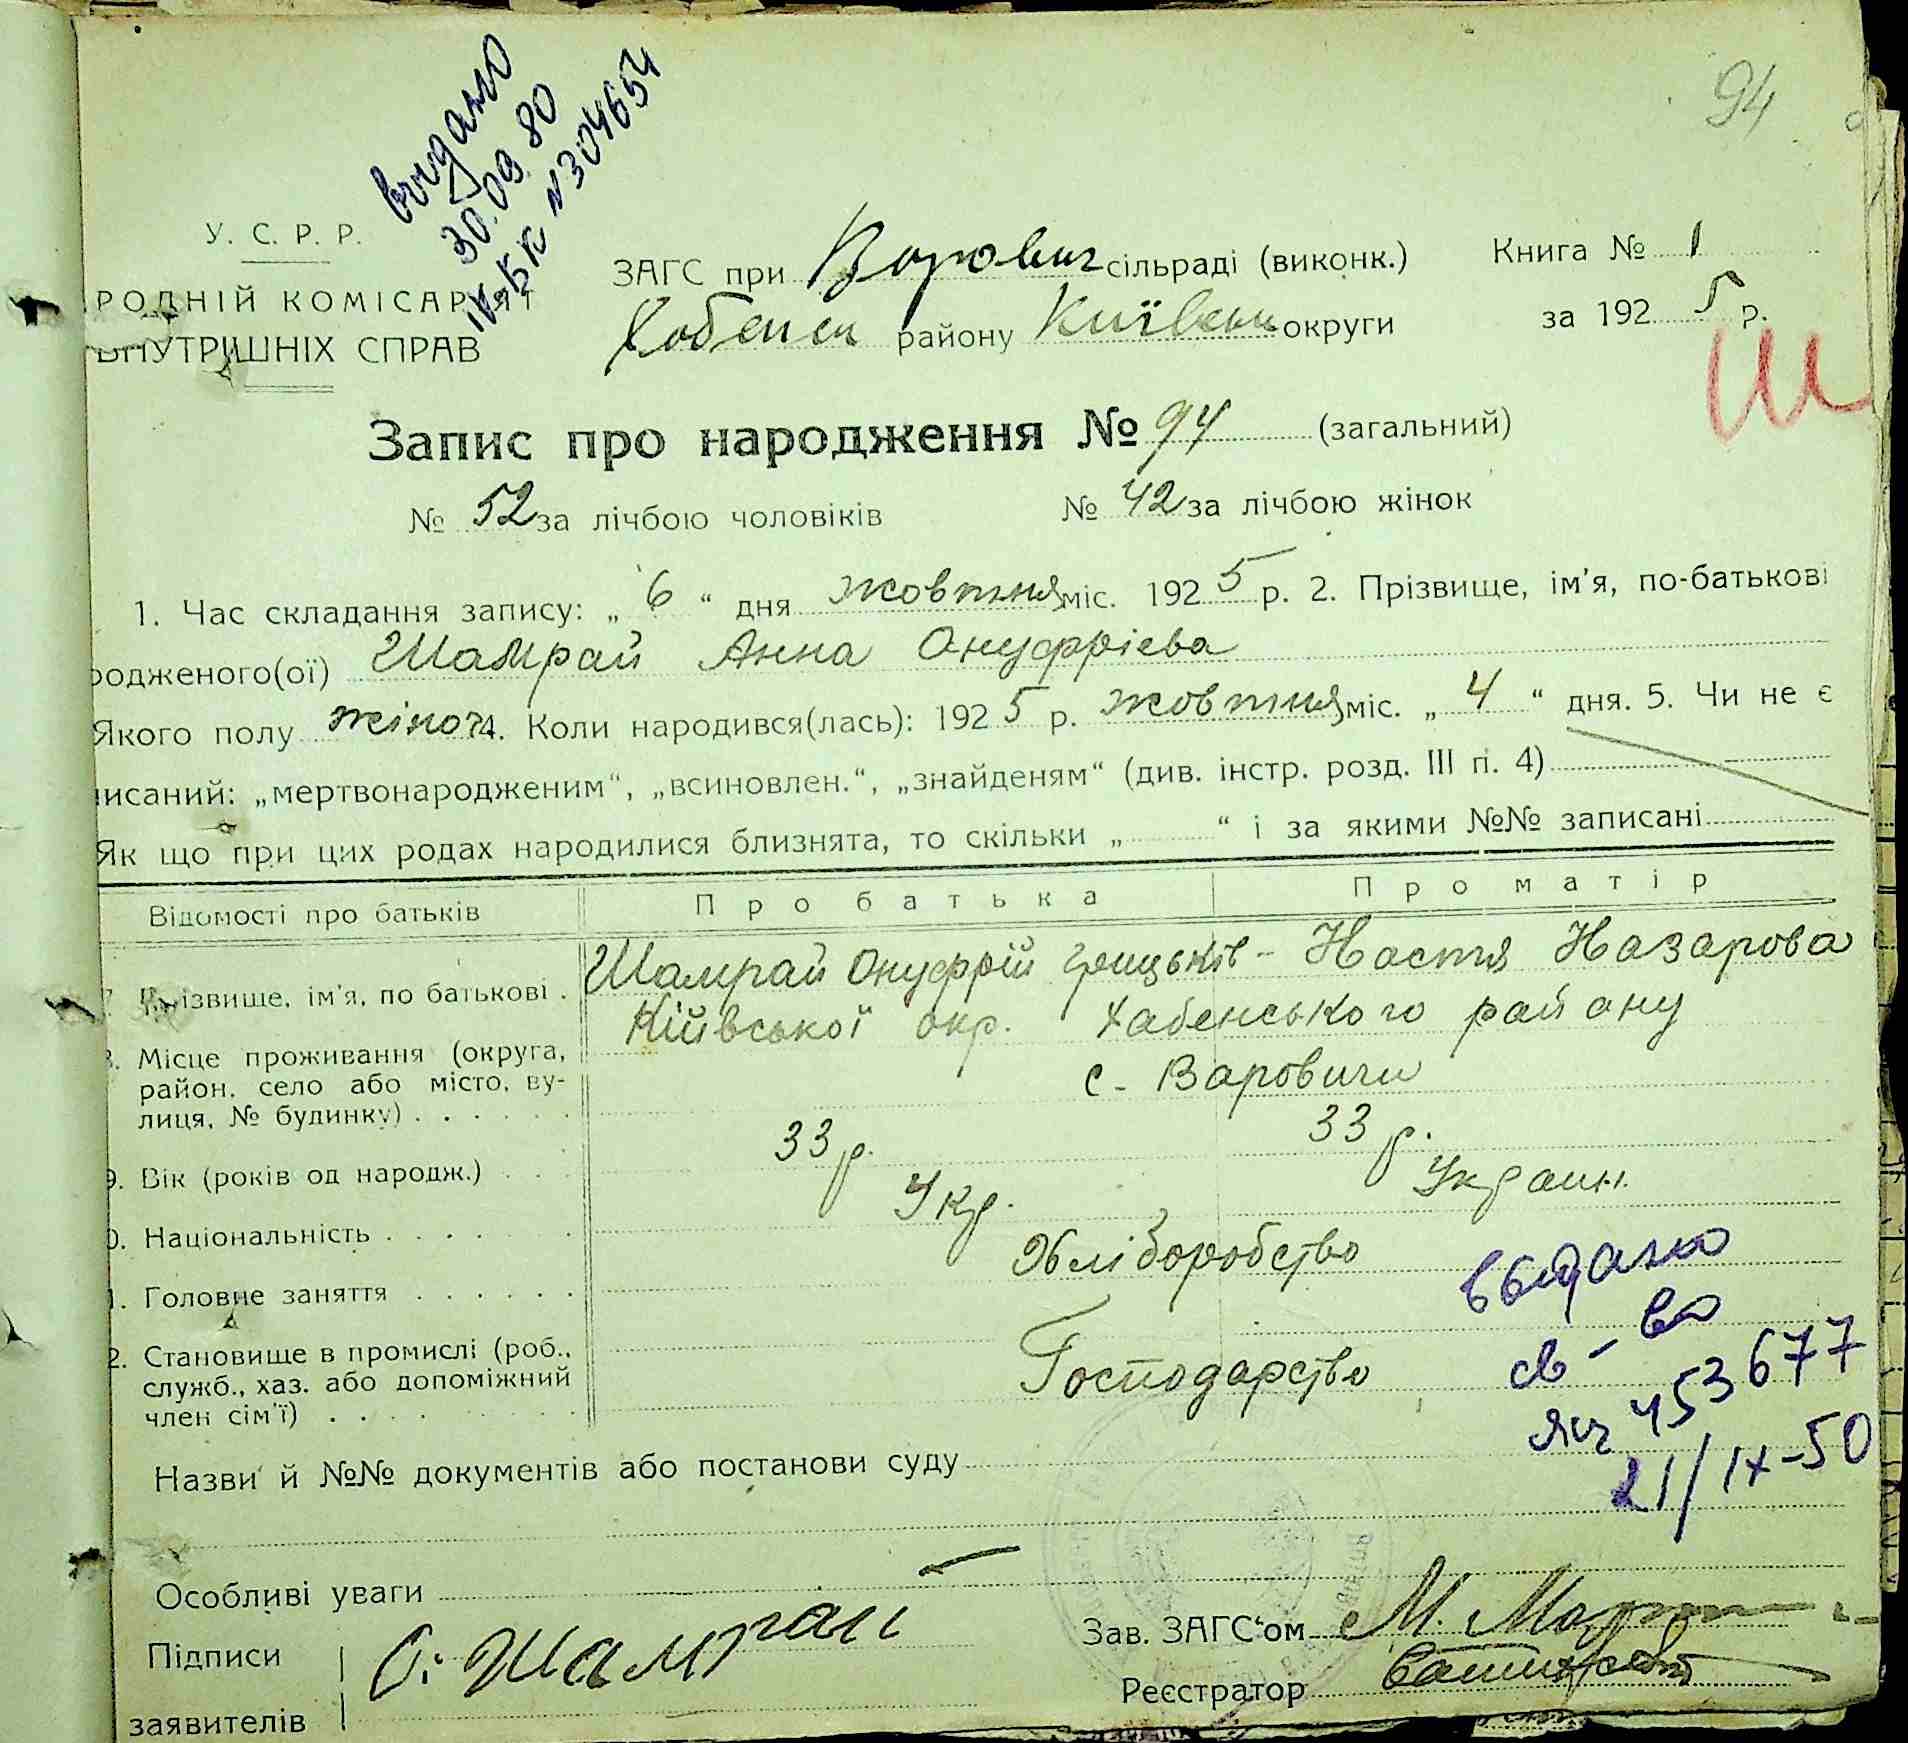 94
видано
30.09.80
IV-БК №304654
У. С. Р. Р.
РОДНІЙ КОМІСАРІЯТ
ВНУТРІШНІХ СПРАВ
ЗАГС при Варович сільраді (виконк.)
Хабенск району Київськ округи
Книга № 1
за 1925 р.
Ш
Запис про народження № 94 (загальний)
№ 52 за лічбою чоловіків № 42 за лічбою жінок
1. Час складання запису: „6“ дня жовтня міс. 1925 р. 2. Прізвище, ім'я, по-батькові
родженого(ої) Шамрай Анна Онуфріева
Якого полу жіноч. 4. Коли народився(лась): 1925 р. жовтня міс. „4“ дня. 5. Чи не є
писаний: „мертвонародженим“, „всиновлен.“, „знайденям“ (див. інстр. розд. III п. 4)
Як що при цих родах народилися близнята, то скільки „ “ і за якими №№ записані
Відомості про батьків Про батька Про матір
7. Прізвище, ім'я, по батькові . Шамрай Онуфрій Грицьків - Настя Назарова
8. Місце проживання (округа, район, село або місто, вулиця, № будинку) Київської окр. Хабенського району
с - Варовичи
9. Вік (років од народж.) 33 р. 33 р.
0. Національність Укр. Украин.
1. Головне заняття Хліборобство
2. Становище в промислі (роб., служб., хаз. або допоміжний член сім'ї) Господарство
выдано
св-во
ЯЧ 453677
21/IX-50
Назви й №№ документів або постанови суду
Особливі уваги
Підписи
заявителів
О. Шамрай
Зав. ЗАГС'ом М.
Реєстратор